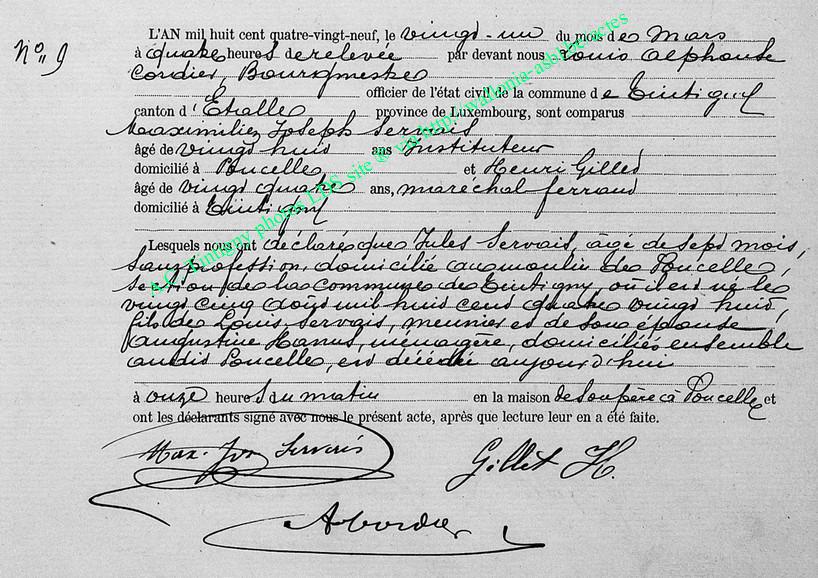 N° 9
L'AN mil huit cent quatre-vingt-neuf, le vingt-un du mois de Mars
à quatre heures de relevée par devant nous Louis Alphonse
Cordier, Bourgmestre
officier de l'état civil de la commune de Tintigny
canton d'Etalle province de Luxembourg, sont comparus
Maximilien Joseph Servais
âgé de vingt huit ans Instituteur
domicilié à Poncelle et Henri Gillet
âgé de vingt quatre ans, maréchal ferrand
domicilié à Tintigny
Lesquels nous ont déclaré que Jules Servais, âgé de sept mois,
sans profession, domicilié au moulin de Poncelle,
section de la commune de Tintigny, où il est né le
vingt cinq août mil huit cent quatre vingt huit,
fils de Louis Servais, meunier et de son épouse
Augustine Hanus, ménagère, domiciliés ensemble
au dit Poncelle, est décédé aujourd'hui
à onze heures du matin en la maison de son père à Poncelle et
ont les déclarants signé avec nous le présent acte, après que lecture leur en a été faite.
Max. Jos Servais Gillet H.
A Cordier
A.C. Tintigny photos LDS site ® via http://wallonia-asbl.be/actes